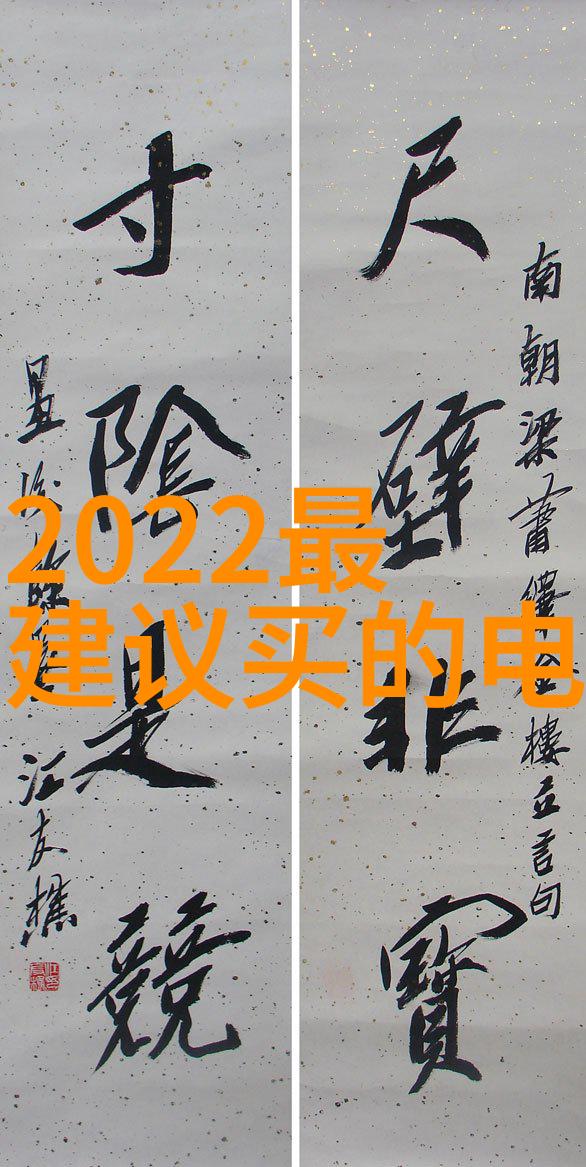 2022最
建议买的电
南朝梁蕭繹金樓立言句
尺璧非寶
寸陰是競
江友樵